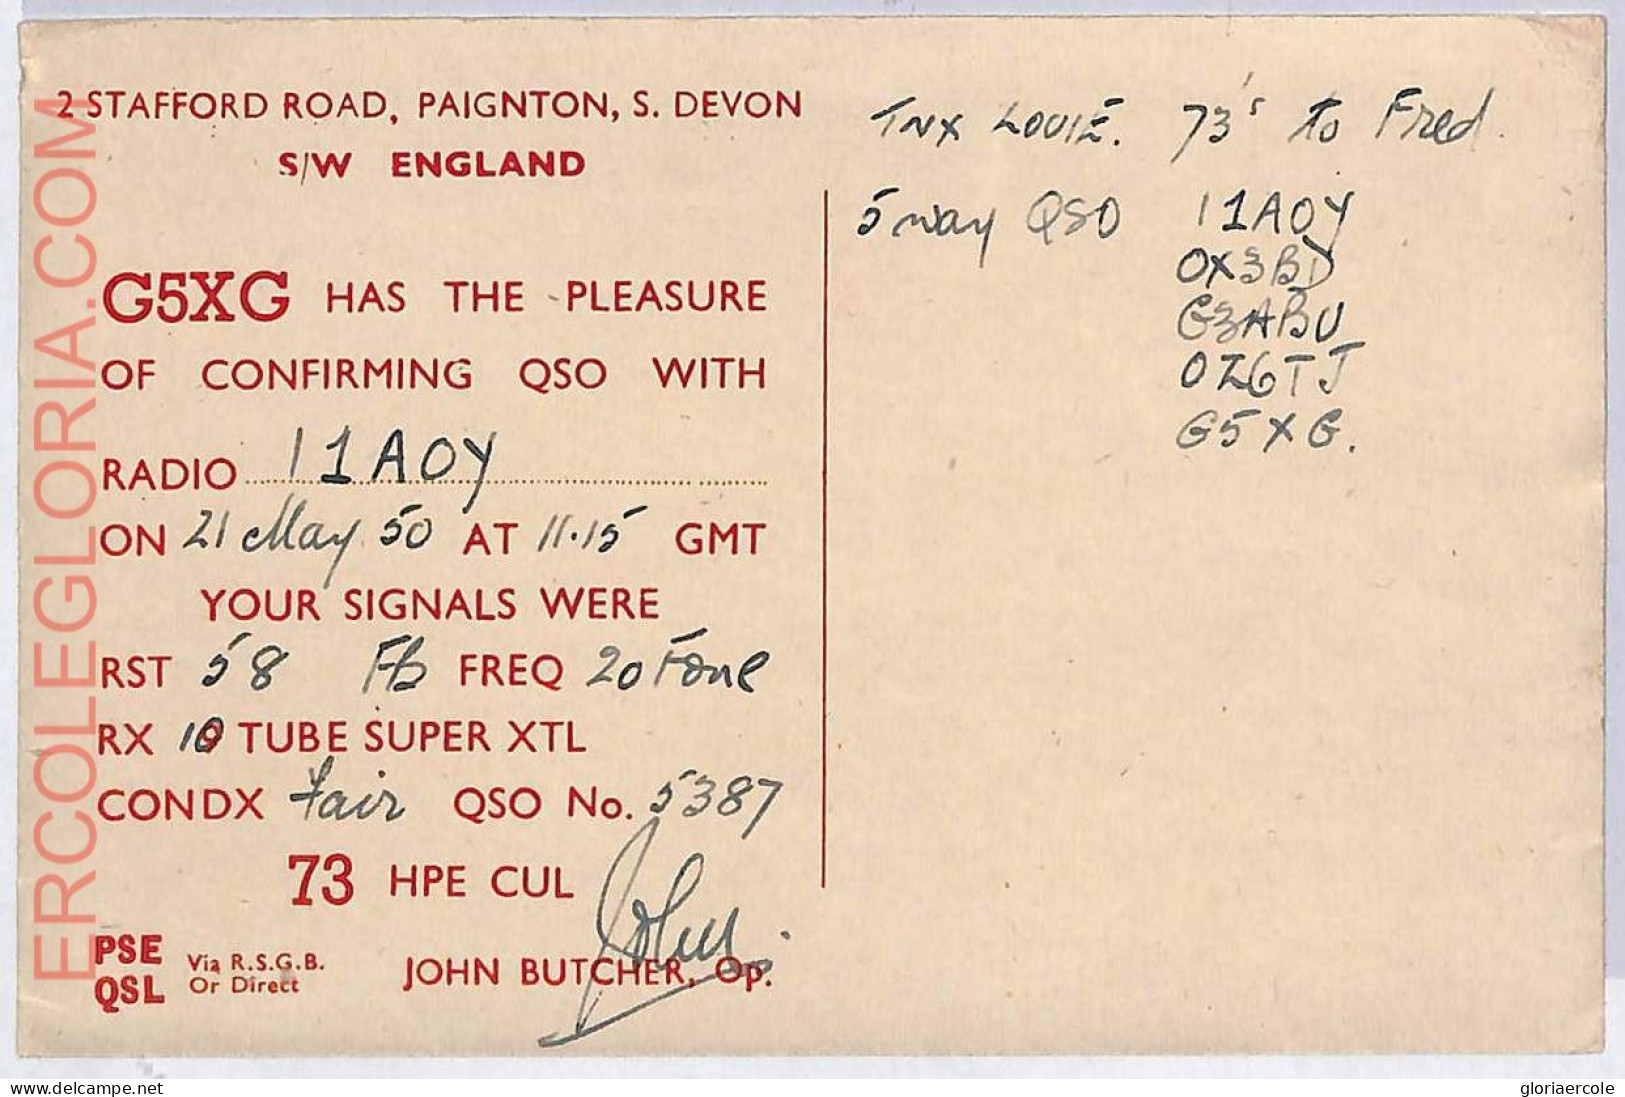 2 STAFFORD ROAD, PAIGNTON, S. DEVON
S/W ENGLAND
G5XG HAS THE PLEASURE
OF CONFIRMING QSO WITH
RADIO I1AOY
ON 21 May 50 AT 11.15 GMT
YOUR SIGNALS WERE
RST 58 FB FREQ 20 Fone
RX 10 TUBE SUPER XTL
CONDX Fair QSO No. 5387
73 HPE CUL
John
PSE
QSL
Via R.S.G.B.
Or Direct
JOHN BUTCHER, Op.
TNX LOUIE. 73's to Fred.
5 way QSO I1AOY
OX3BD
G3ABU
OZ6TJ
G5XG.
ERCOLEGLORIA.COM
www.delcampe.net
gloriaercole